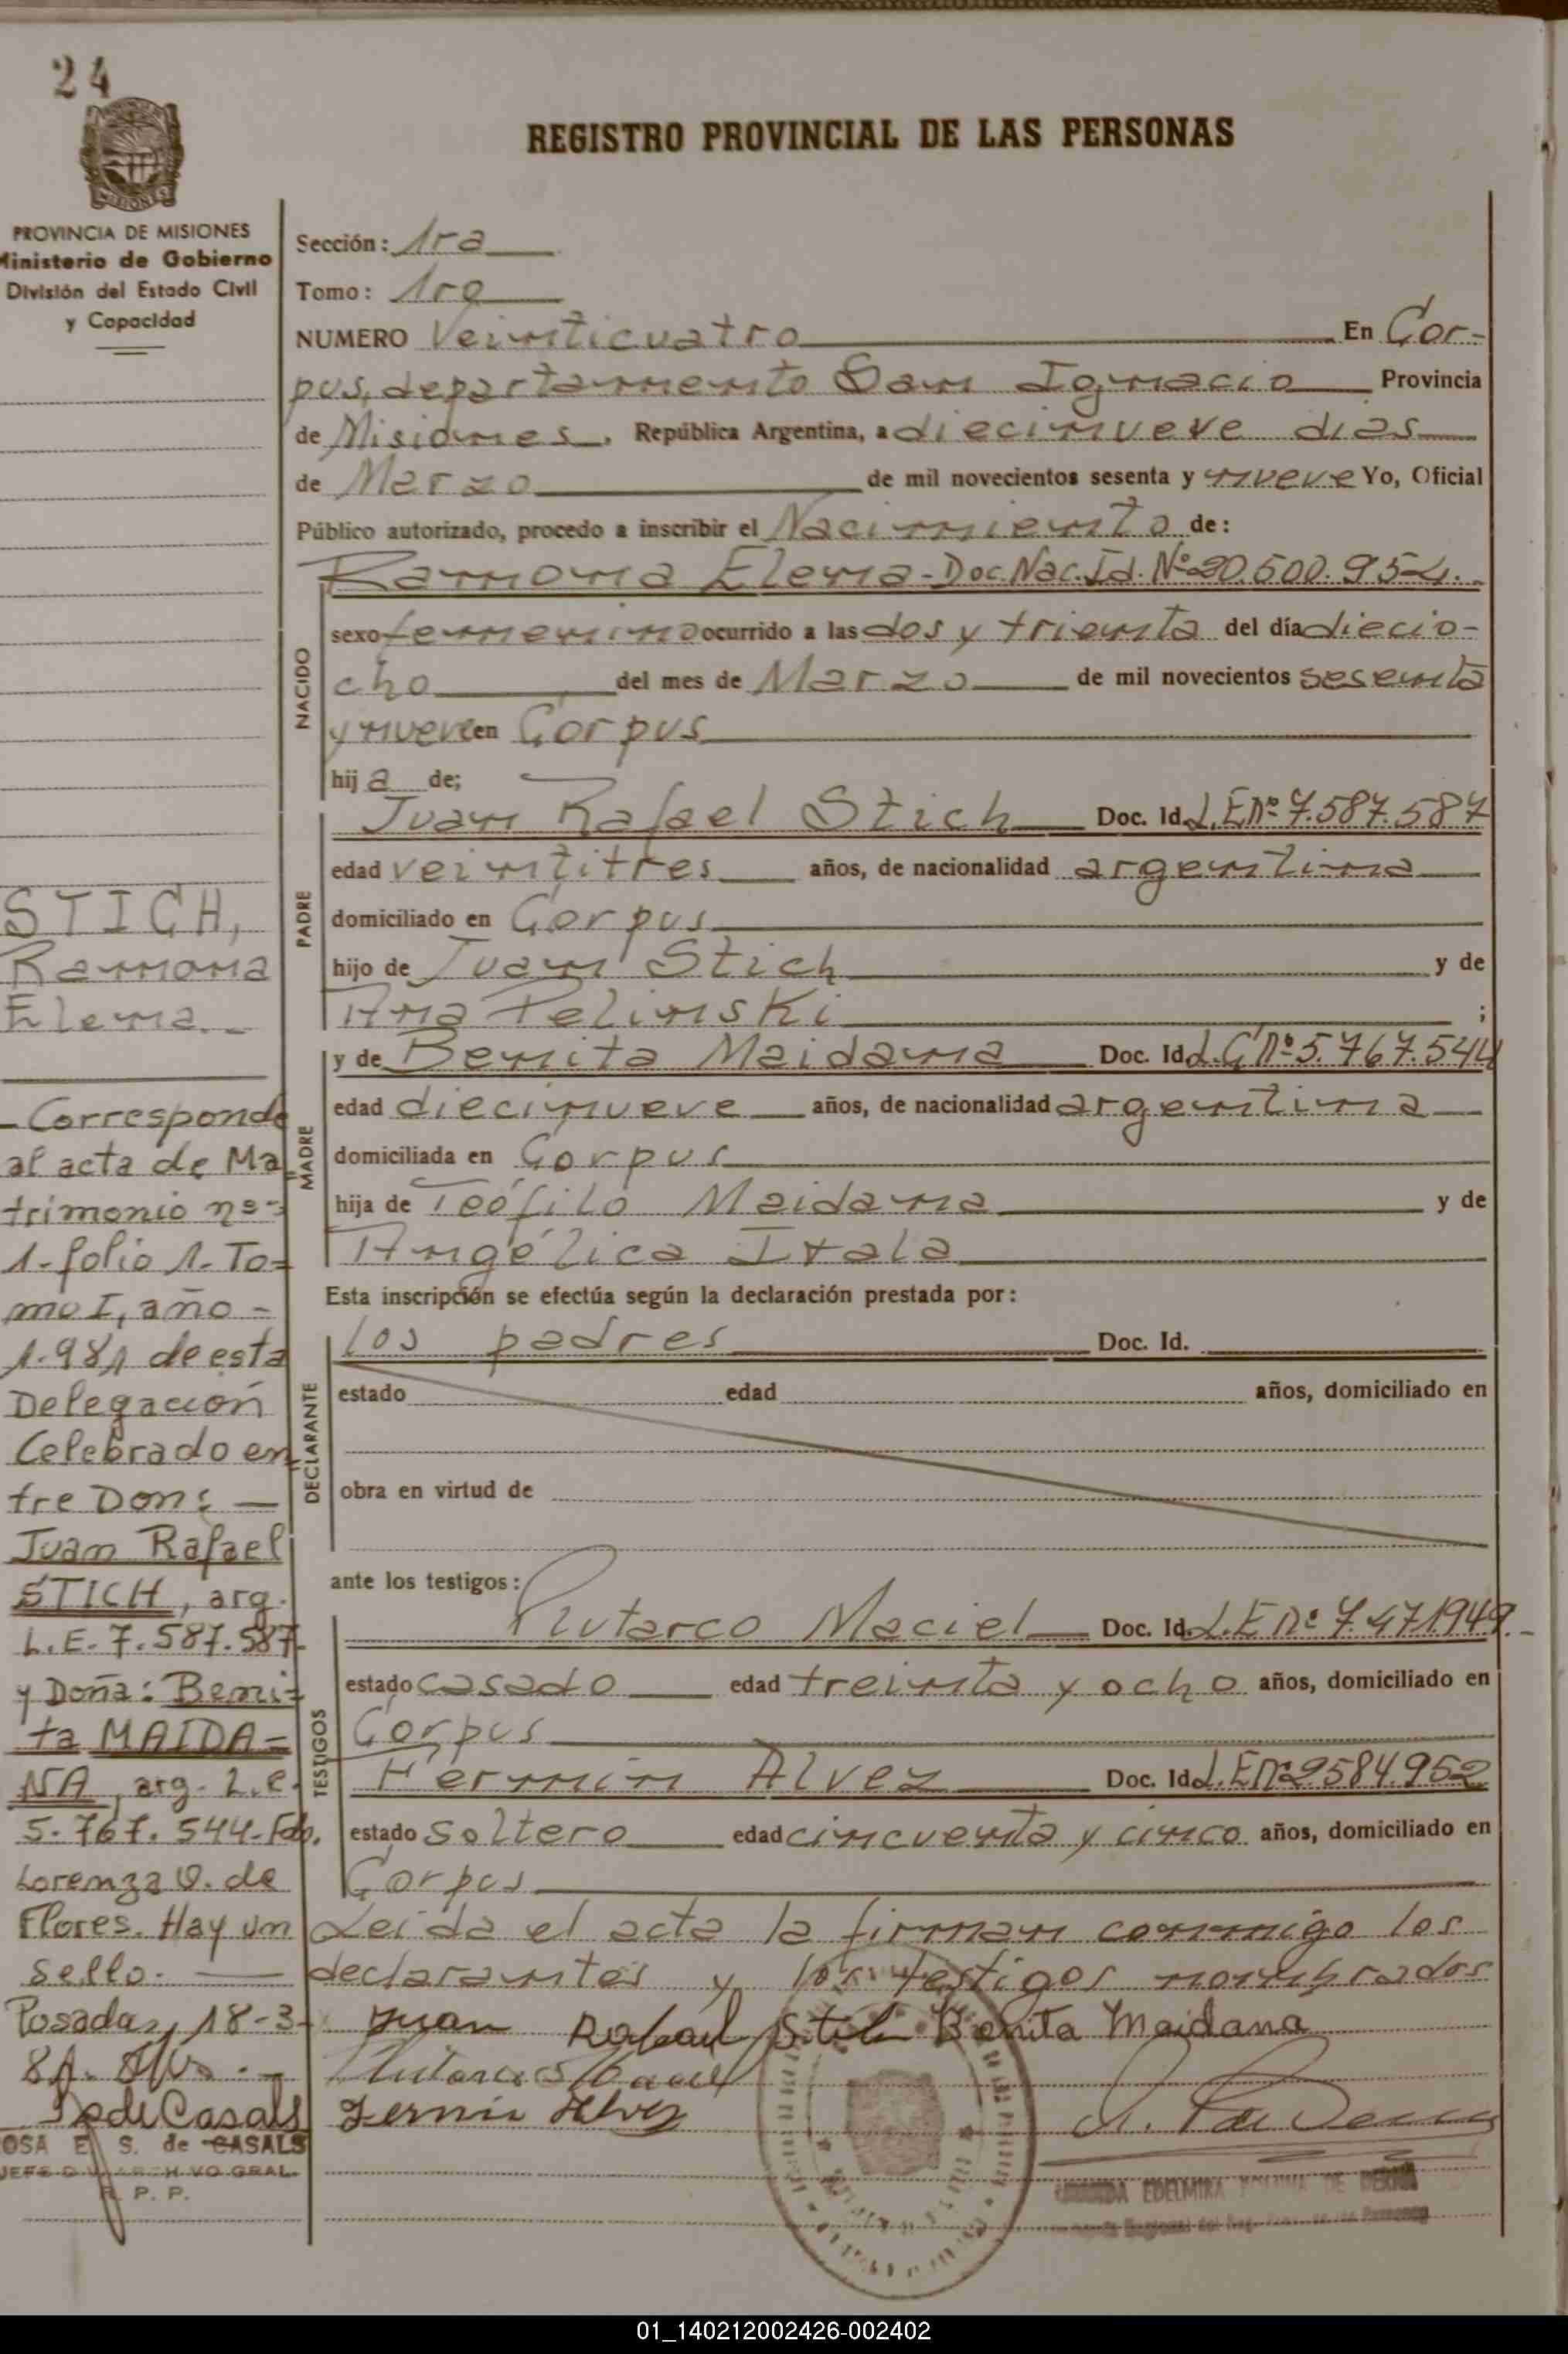 24
REGISTRO PROVINCIAL DE LAS PERSONAS
PROVINCIA DE MISIONES
Ministerio de Gobierno
División del Estado Civil
y Capacidad
Sección: 1ra
Tomo: 1ro
NUMERO Veinticuatro En Cor-
pus, departamento San Ignacio Provincia
de Misiones, República Argentina, a diecinueve dias
de Marzo de mil novecientos sesenta y nueve Yo, Oficial
Público autorizado, procedo a inscribir el Nacimiento de:
Ramona Elena - Doc. Nac. Id. Nº 20.500.954.
NACIDO
sexo femenino ocurrido a las dos y trienta del día diecio-
cho del mes de Marzo de mil novecientos sesenta
y nueve en Corpus
hija de;
PADRE
Juan Rafael Stich Doc. Id. L.E nº 7.587.587
edad veintitres años, de nacionalidad argentina
domiciliado en Corpus
hijo de Juan Stich y de
Ana Pelinski ;
MADRE
y de Benita Maidana Doc. Id. L.C nº 5.767.544
edad diecinueve años, de nacionalidad argentina
domiciliada en Corpus
hija de Teófilo Maidana y de
Angélica Itala
Esta inscripción se efectúa según la declaración prestada por:
DECLARANTE
los padres Doc. Id.
estado edad años, domiciliado en
obra en virtud de
ante los testigos:
TESTIGOS
Plutarco Maciel Doc. Id. L.E nº 7.471.949.-
estado casado edad treinta y ocho años, domiciliado en
Corpus
Fermin Alvez Doc. Id. L.E nº 2584.952
estado soltero edad cincuenta y cinco años, domiciliado en
Corpus
Leida el acta la firman conmigo los
declarantes y los testigos nombrados
Juan Rafael Stich Benita Maidana
Plutarco Maciel
Fermin Alvez
EDELMIRA DE
STICH,
Ramona
Elena.-
- Corresponde
al acta de Ma
trimonio nº-
1- folio 1. To-
mo I, año -
1.981 de esta
Delegación
Celebrado en
tre Don: —
Juan Rafael
STICH, arg.
L.E. 7.587.587-
y Doña: Beni-
ta MAIDA-
NA, arg. L.C.
5.767.544- Fdo.
Lorenza O. de
Flores. Hay un
sello. —
Posadas, 18-3-
81.
de Casals
OSA E S. de CASALS
R. P. P.
01_140212002426-002402